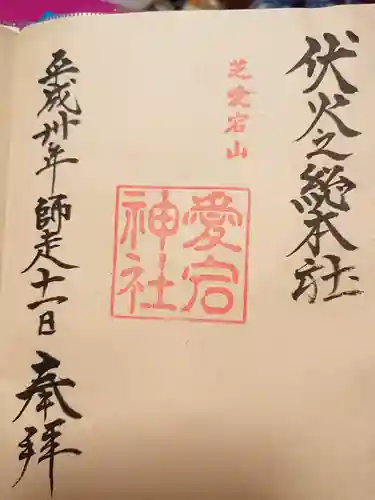 伏火之總本社
芝愛宕山
愛宕
神社
平成卅年師走十一日
奉拝